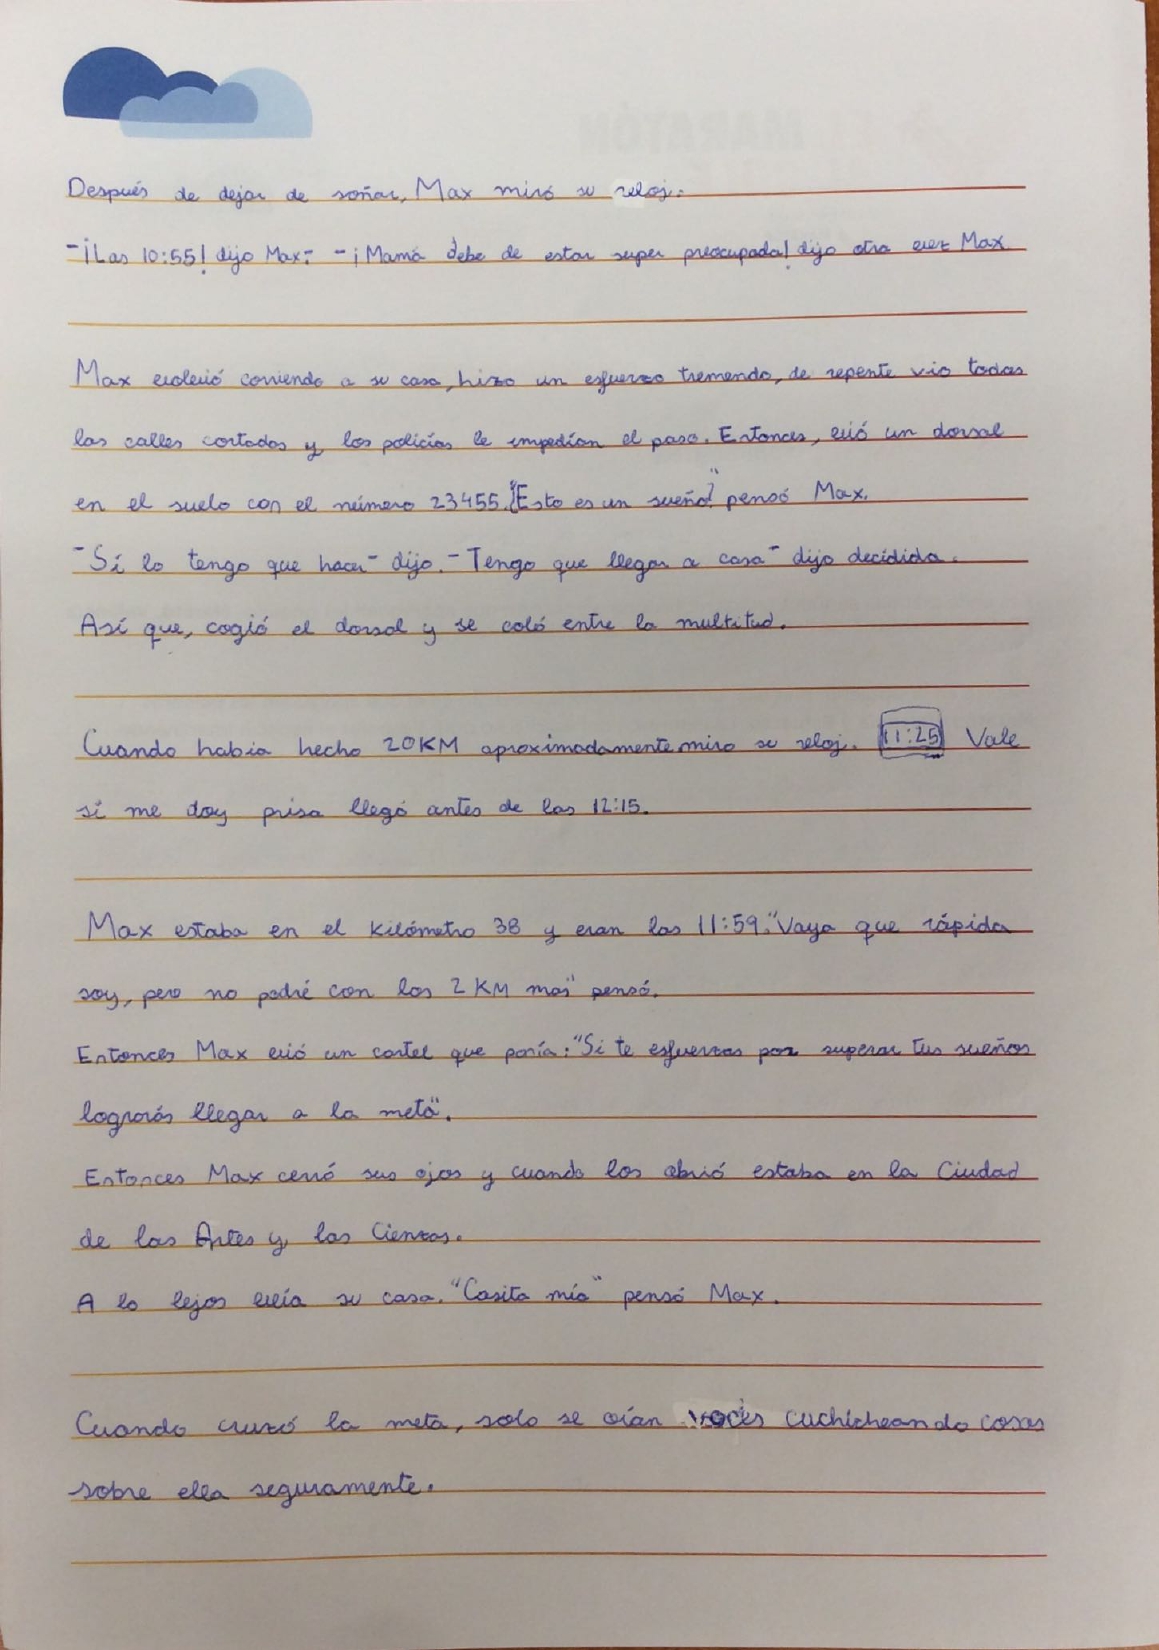 Después de dejar de soñar, Max miró su reloj.
-¡Las 10:55! dijo Max- -¡Mamá debe de estar super preocupada! dijo otra vez Max
Max volvió corriendo a su casa, hizo un esfuerzo tremendo, de repente vio todas
las calles cortadas y los policías le impedían el paso. Entonces, vió un dorsal
en el suelo con el número 23455. "¿Esto es un sueño?" pensó Max.
-Sí lo tengo que hacer- dijo. -Tengo que llegar a casa- dijo decidida.
Así que, cogió el dorsal y se coló entre la multitud.
Cuando habia hecho 20KM aproximadamente miro su reloj. 11:25 Vale
si me doy prisa llegó antes de las 12:15.
Max estaba en el kilómetro 38 y eran las 11:59. "Vaya que rápida
soy, pero no podré con los 2 KM mas" pensó.
Entonces Max vió un cartel que ponía: "Si te esfuerzas por superar tus sueños
lograrás llegar a la meta".
Entonces Max cerró sus ojos y cuando los abrió estaba en la Ciudad
de las Artes y las Cienzas.
A lo lejos veía su casa. "Casita mía" pensó Max.
Cuando cruzó la meta, solo se oían voces cuchicheando cosas
sobre ella seguramente.